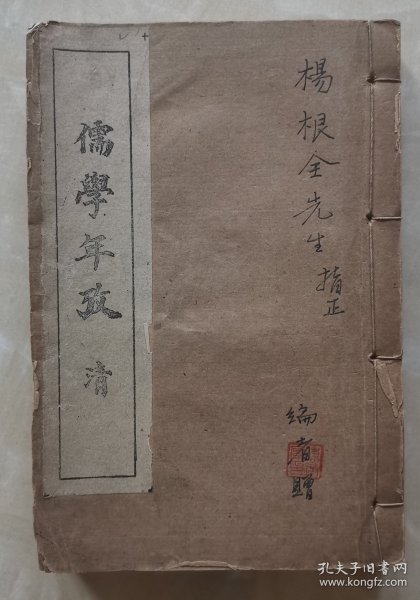 楊根全先生指正
編者贈
儒學年攷
清
孔夫子旧书网
www.kongfz.com